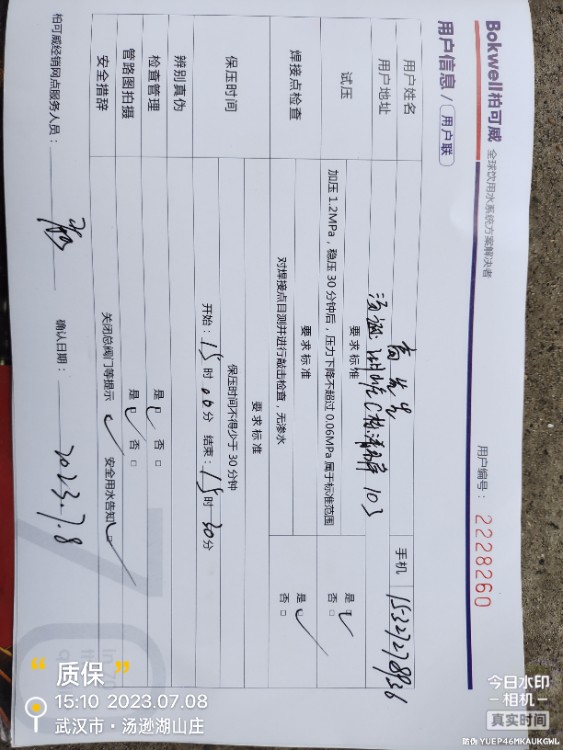 Bokwell柏可威 全球饮用水系统方案解决者
用户编号： 2228260
用户信息 / 用户联
用户姓名 高先生 手机
用户地址 C栋 103
试压 要求标准
加压 1.2MPa，稳压 30 分钟后，压力下降不超过 0.06MPa 属于标准范围 是 □ 否 □
焊接点检查 要求标准
对焊接点目测并进行敲击检查，无渗水 是 □ 否 □
保压时间 要求标准
保压时间不得少于 30 分钟
开始：15时00分 结束：15时30分
辨别真伪
检查管理 是 □ 否 □
管路图拍摄 是 □ 否 □
安全措辞 关闭总阀门等提示 安全用水告知
柏可威经销网点服务人员： 确认日期： 2023.7.8
“ 质保 ”
15:10 2023.07.08
武汉市·汤逊湖山庄
今日水印
相机
真实时间
防伪 YUEP46MKAUKGWL